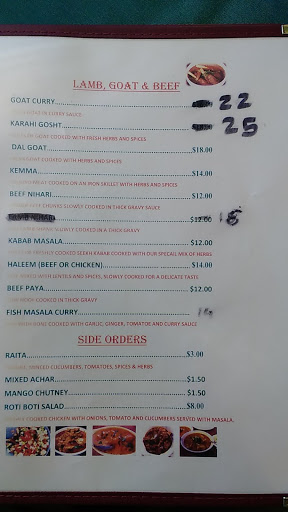 LAMB, GOAT & BEEF
GOAT CURRY 22
IN CURRY SAUCE
KARAHI GOSHT 25
GOAT COOKED WITH FRESH HERBS AND SPICES
DAL GOAT $18.00
COOKED WITH HERBS AND SPICES
KEMMA $14.00
MEAT COOKED ON AN IRON SKILLET WITH HERBS AND SPICES
BEEF NIHARI $12.00
CHUNKS SLOWLY COOKED IN THICK GRAVY SAUCE
$12.00
SLOWLY COOKED IN A THICK GRAVY
KABAB MASALA $12.00
FRESHLY COOKED SEEKH KABAB COOKED WITH OUR SPECAIL MIX OF HERBS
HALEEM (BEEF OR CHICKEN) $14.00
WITH LENTILS AND SPICES, SLOWLY COOKED FOR A DELICATE TASTE
BEEF PAYA $12.00
COOKED IN THICK GRAVY
FISH MASALA CURRY
COOKED WITH GARLIC, GINGER, TOMATOE AND CURRY SAUCE
SIDE ORDERS
RAITA $3.00
MINCED CUCUMBERS, TOMATOES, SPICES & HERBS
MIXED ACHAR $1.50
MANGO CHUTNEY $1.50
ROTI BOTI SALAD $8.00
COOKED CHICKEN WITH ONIONS, TOMATO AND CUCUMBERS SERVED WITH MASALA.